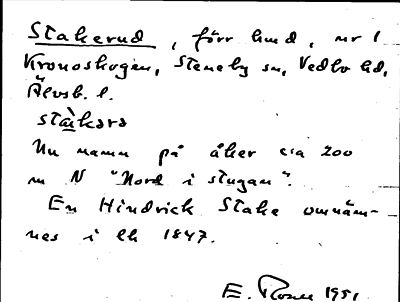 Stakerud, förr lund, nr 1
Kronoskogen, Steneby sn, Vedbo hd,
Älvsb. l.
stàkərə
Nu namn på åker c:a 200
m N "Nord i stugan".
En Hindrick Stake omnäm-
nes i lh 1847.
E. 1951